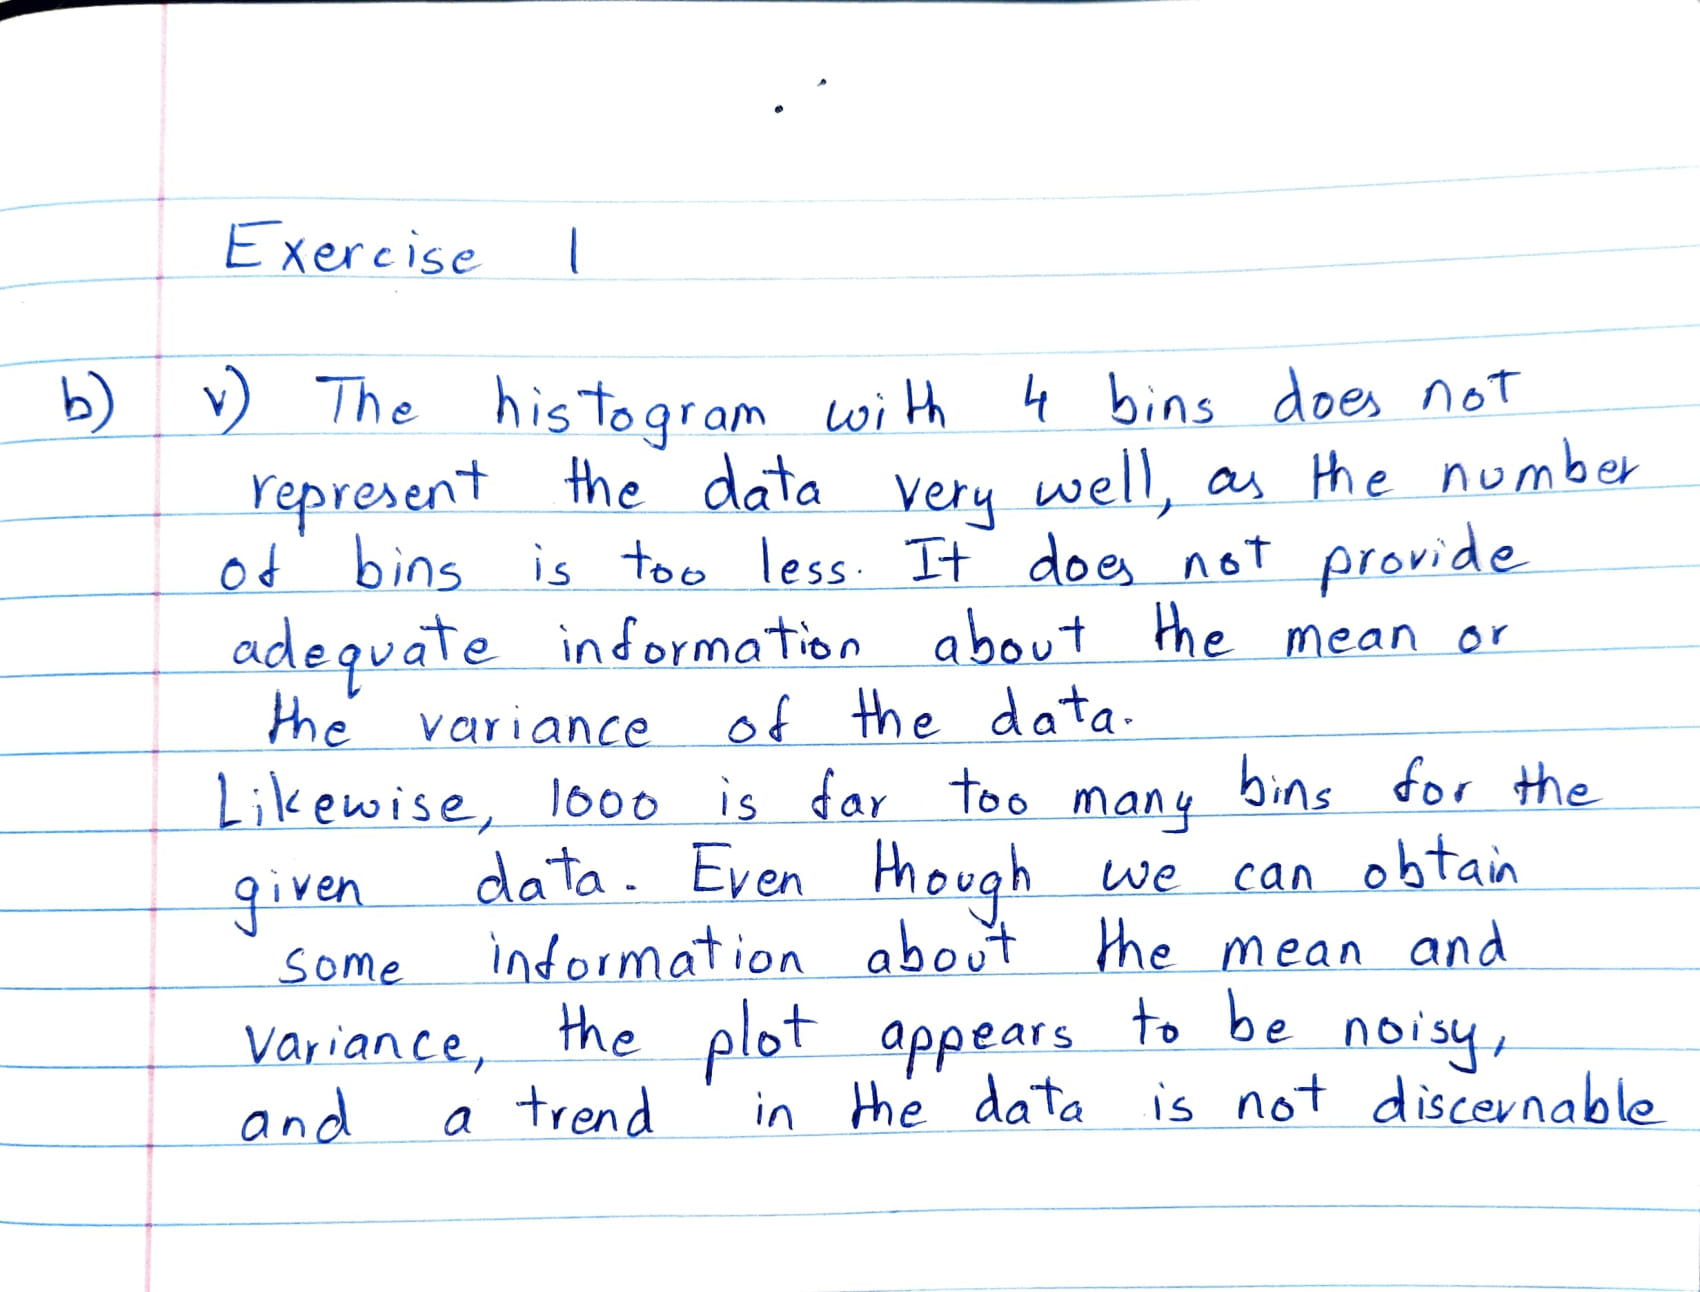 Exercise 1
b) v) The histogram with 4 bins does not
represent the data very well, as the number
of bins is too less. It does not provide
adequate information about the mean or
the variance of the data.
Likewise, 1000 is far too many bins for the
given data. Even though we can obtain
some information about the mean and
variance, the plot appears to be noisy,
and a trend in the data is not discernable